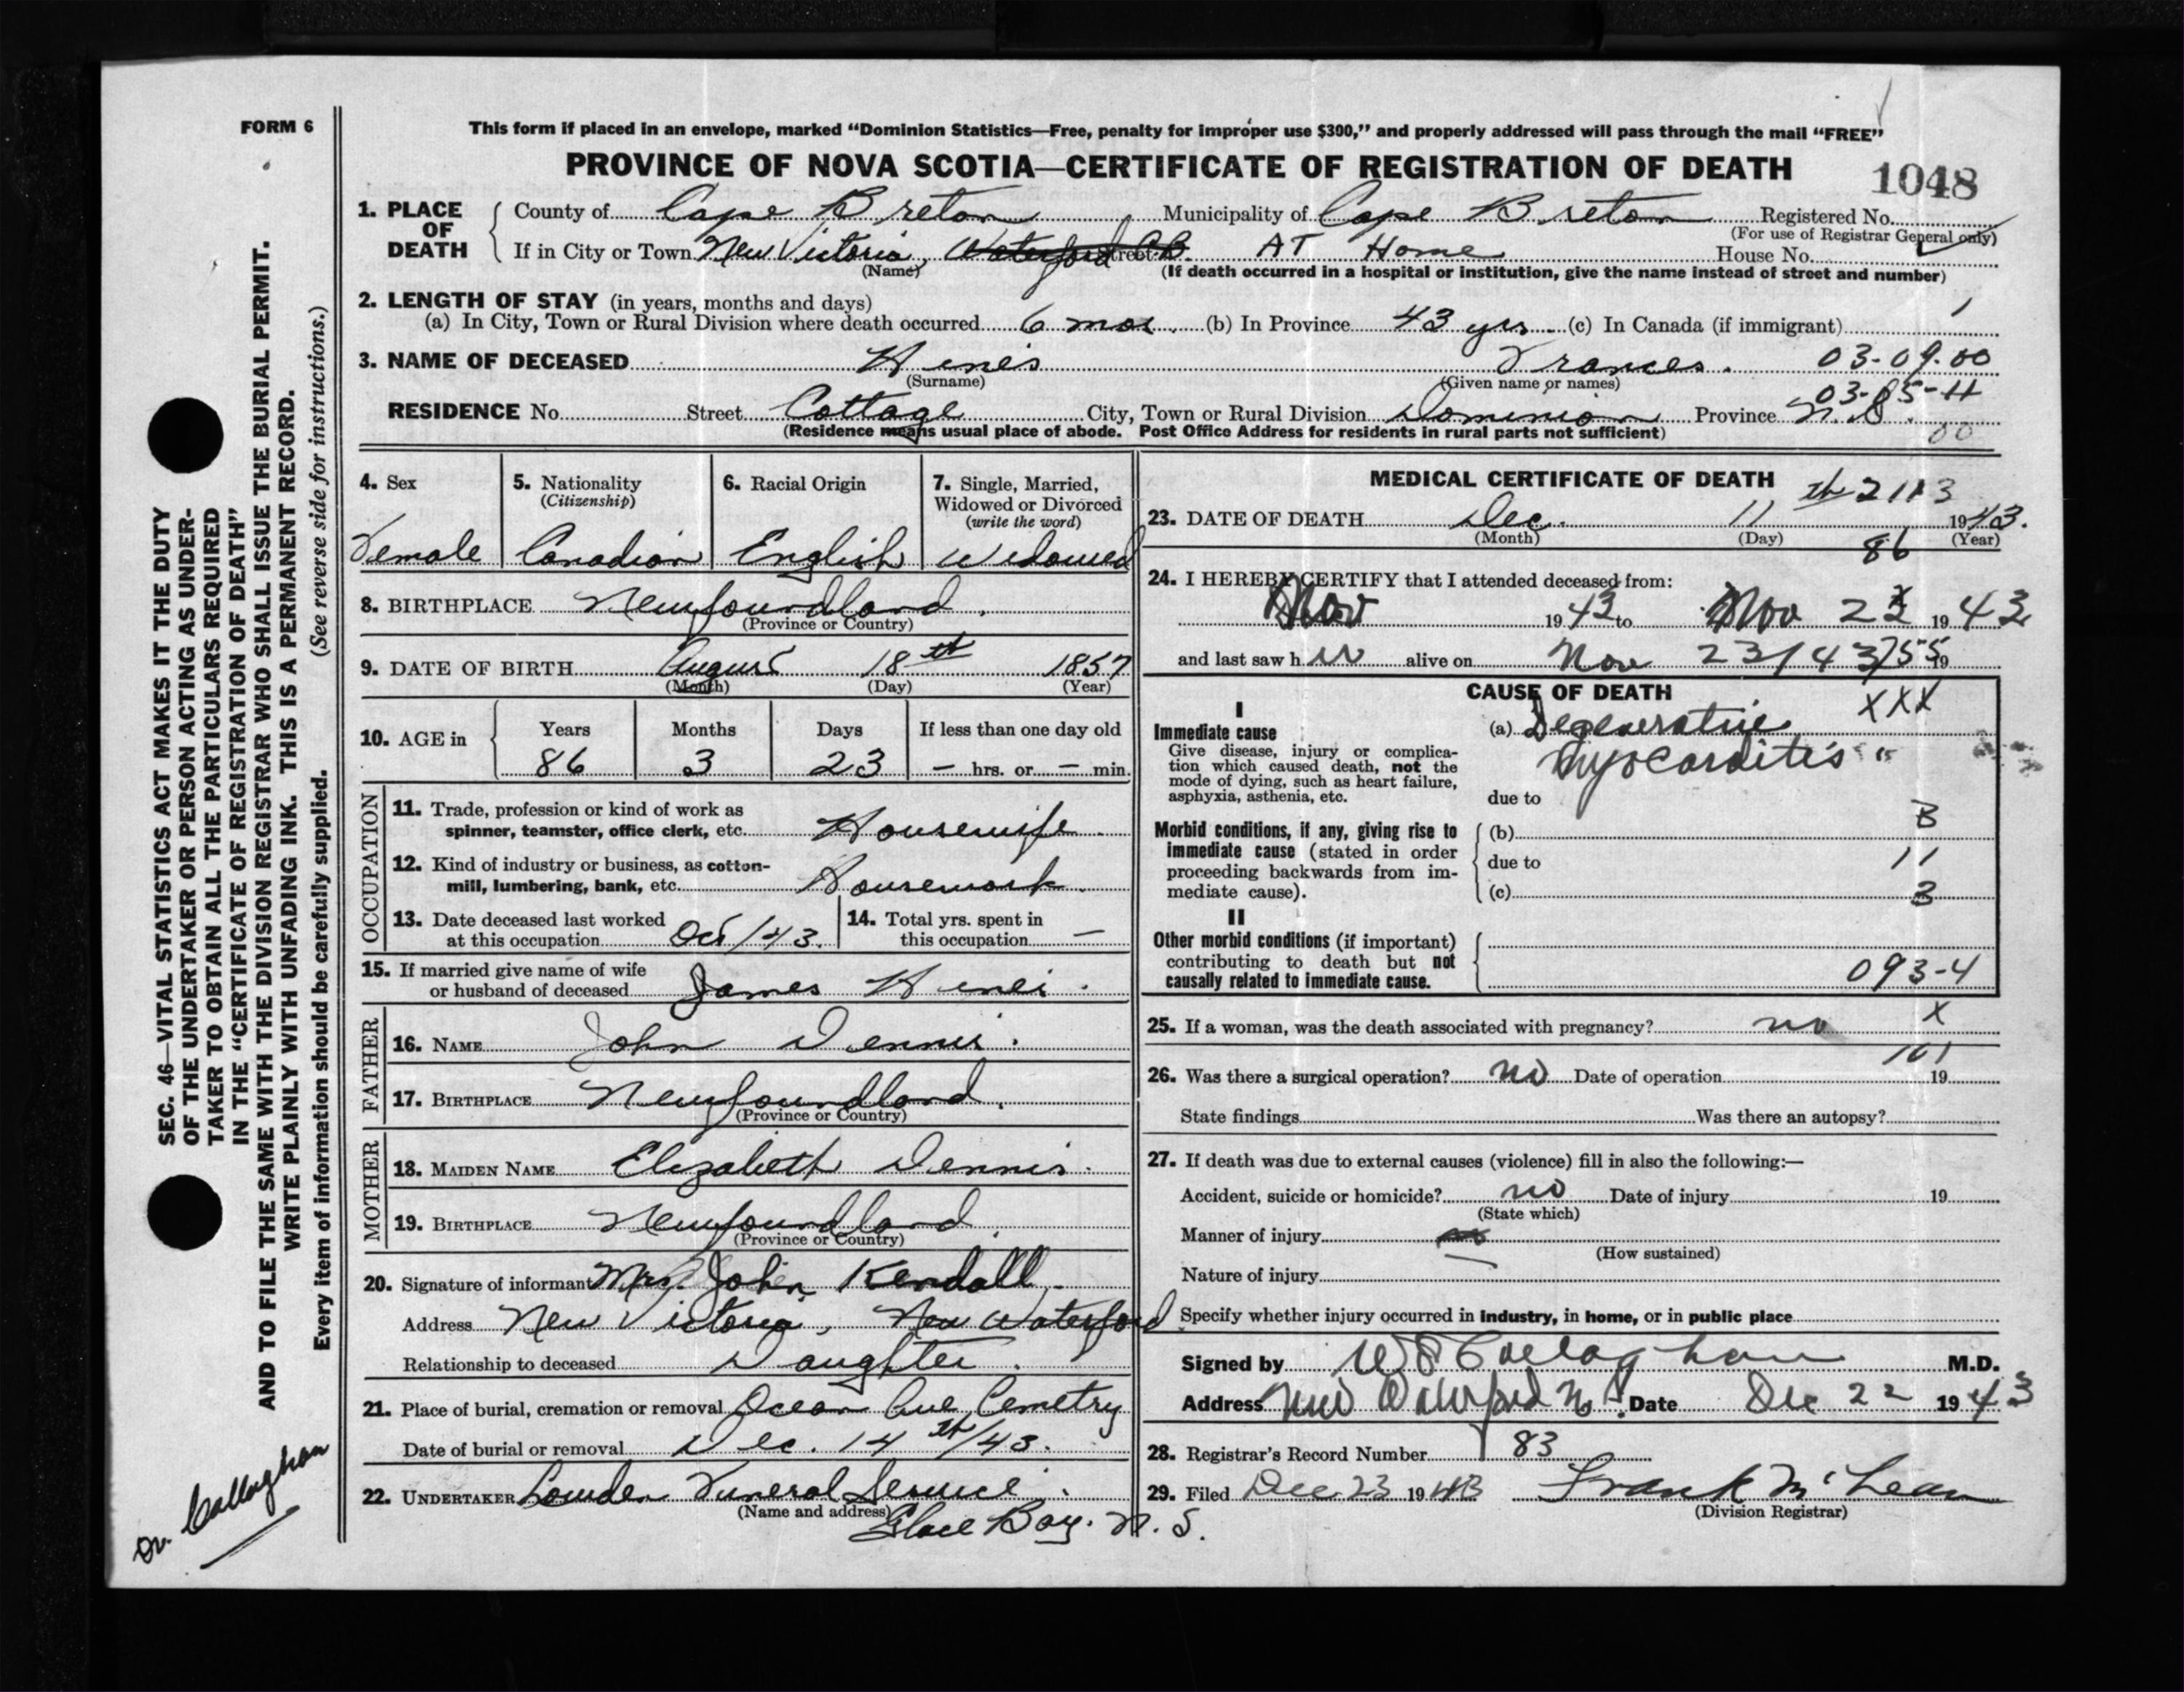 FORM 6
This form if placed in an envelope, marked “Dominion Statistics—Free, penalty for improper use $300,” and properly addressed will pass through the mail “FREE”
PROVINCE OF NOVA SCOTIA—CERTIFICATE OF REGISTRATION OF DEATH
1048
1. PLACE OF DEATH
County of Cape Breton Municipality of Cape Breton Registered No.
(For use of Registrar General only)
If in City or Town New Victoria, Waterford C.B. Street AT Home House No.
(Name) (If death occurred in a hospital or institution, give the name instead of street and number)
2. LENGTH OF STAY (in years, months and days)
(a) In City, Town or Rural Division where death occurred 6 mos. (b) In Province 43 yrs. (c) In Canada (if immigrant) 1
3. NAME OF DECEASED Hines Frances. 03-09.00
(Surname) (Given name or names) 03-05-11
RESIDENCE No. Street Cottage City, Town or Rural Division Dominion Province N.S.
(Residence means usual place of abode. Post Office Address for residents in rural parts not sufficient) 00
4. Sex Female
5. Nationality (Citizenship) Canadian
6. Racial Origin English
7. Single, Married, Widowed or Divorced (write the word) Widowed
8. BIRTHPLACE Newfoundland.
(Province or Country)
9. DATE OF BIRTH August 18th 1857
(Month) (Day) (Year)
10. AGE in Years Months Days If less than one day old
86 3 23 – hrs. or – min.
OCCUPATION
11. Trade, profession or kind of work as spinner, teamster, office clerk, etc. Housewife.
12. Kind of industry or business, as cotton-mill, lumbering, bank, etc. Housework.
13. Date deceased last worked at this occupation Oct/43.
14. Total yrs. spent in this occupation —
15. If married give name of wife or husband of deceased James Hines.
FATHER
16. NAME John Dennis.
17. BIRTHPLACE Newfoundland.
(Province or Country)
MOTHER
18. MAIDEN NAME Elizabeth Dennis.
19. BIRTHPLACE Newfoundland.
(Province or Country)
20. Signature of informant Mrs. John Kendall.
Address New Victoria, New Waterford
Relationship to deceased Daughter.
21. Place of burial, cremation or removal Ocean Ave Cemetry
Date of burial or removal Dec. 14th/43.
22. UNDERTAKER Lowden Funeral Service.
(Name and address) Glace Bay. N.S.
MEDICAL CERTIFICATE OF DEATH
2113
23. DATE OF DEATH Dec. 11th 1943.
(Month) (Day) (Year)
86
24. I HEREBY CERTIFY that I attended deceased from:
Nov 1943 to Nov 23 1943
and last saw her alive on Nov 23/43 19
755
CAUSE OF DEATH
XXX
I
Immediate cause
Give disease, injury or complication which caused death, not the mode of dying, such as heart failure, asphyxia, asthenia, etc.
(a) Degenerative
Myocarditis
due to
Morbid conditions, if any, giving rise to immediate cause (stated in order proceeding backwards from immediate cause).
(b) B
due to 11
(c) 3
II
Other morbid conditions (if important) contributing to death but not causally related to immediate cause.
093-4
25. If a woman, was the death associated with pregnancy? no X
101
26. Was there a surgical operation? no Date of operation 19
State findings Was there an autopsy?
27. If death was due to external causes (violence) fill in also the following:—
Accident, suicide or homicide? no Date of injury 19
(State which)
Manner of injury
(How sustained)
Nature of injury
Specify whether injury occurred in industry, in home, or in public place
Signed by Callaghan M.D.
Address New Waterford N.S. Date Dec 22 1943
28. Registrar's Record Number 83
29. Filed Dec. 23 1943 Frank McLean
(Division Registrar)
SEC. 46—VITAL STATISTICS ACT MAKES IT THE DUTY
OF THE UNDERTAKER OR PERSON ACTING AS UNDER-
TAKER TO OBTAIN ALL THE PARTICULARS REQUIRED
IN THE “CERTIFICATE OF REGISTRATION OF DEATH”
AND TO FILE THE SAME WITH THE DIVISION REGISTRAR WHO SHALL ISSUE THE BURIAL PERMIT.
WRITE PLAINLY WITH UNFADING INK. THIS IS A PERMANENT RECORD.
Every item of information should be carefully supplied. (See reverse side for instructions.)
Dr. Callaghan